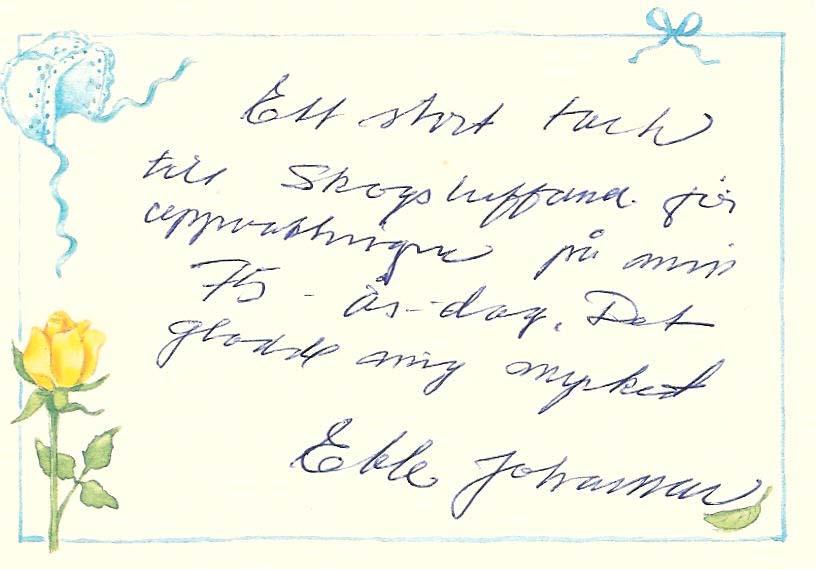 Ett stort tack
till Skogsluffarna för
uppvaktningen på min
75-års-dag. Det
gladde mig mycket
Ebbe Johansson